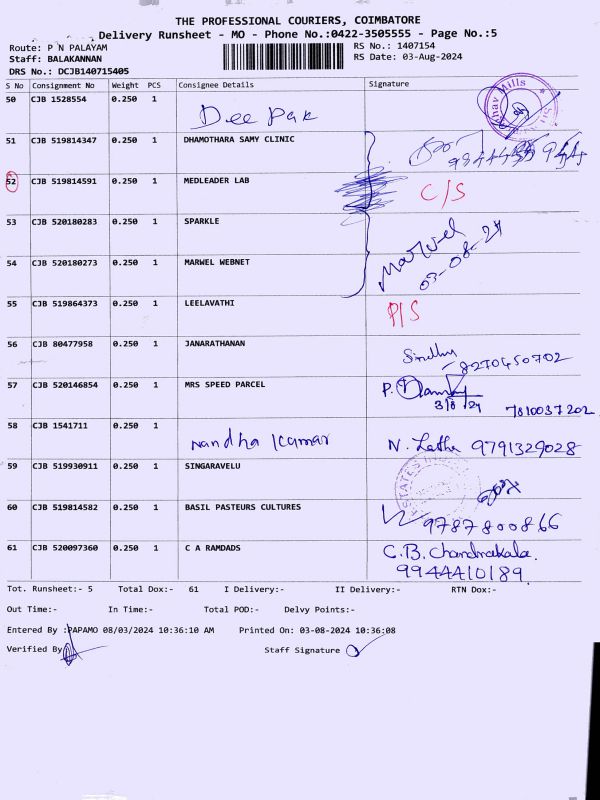 THE PROFESSIONAL COURIERS, COIMBATORE
Delivery Runsheet - MO - Phone No.:0422-3505555 - Page No.:5
Route: P N PALAYAM
RS No.: 1407154
Staff: BALAKANNAN
RS Date: 03-Aug-2024
DRS No.: DCJB140715405
S No Consignment No Weight PCS Consignee Details Signature
50 CJB 1528554 0.250 1 Deepak
51 CJB 519814347 0.250 1 DHAMOTHARA SAMY CLINIC
52 CJB 519814591 0.250 1 MEDLEADER LAB C/S
53 CJB 520180283 0.250 1 SPARKLE
54 CJB 520180273 0.250 1 MARWEL WEBNET Marwel
03-08-24
55 CJB 519864373 0.250 1 LEELAVATHI P/S
56 CJB 80477958 0.250 1 JANARATHANAN Sindhu
8270450702
57 CJB 520146854 0.250 1 MRS SPEED PARCEL P.
3/8/24 7810037202
58 CJB 1541711 0.250 1 Nandha Kumar N. Latha 9791329028
59 CJB 519930911 0.250 1 SINGARAVELU
60 CJB 519814582 0.250 1 BASIL PASTEURS CULTURES 9787800866
61 CJB 520097360 0.250 1 C A RAMDADS C.B. Chandrakala.
9944410189.
Tot. Runsheet:- 5 Total Dox:- 61 I Delivery:- II Delivery:- RTN Dox:-
Out Time:- In Time:- Total POD:- Delvy Points:-
Entered By :PAPAMO 08/03/2024 10:36:10 AM Printed On: 03-08-2024 10:36:08
Verified By Staff Signature